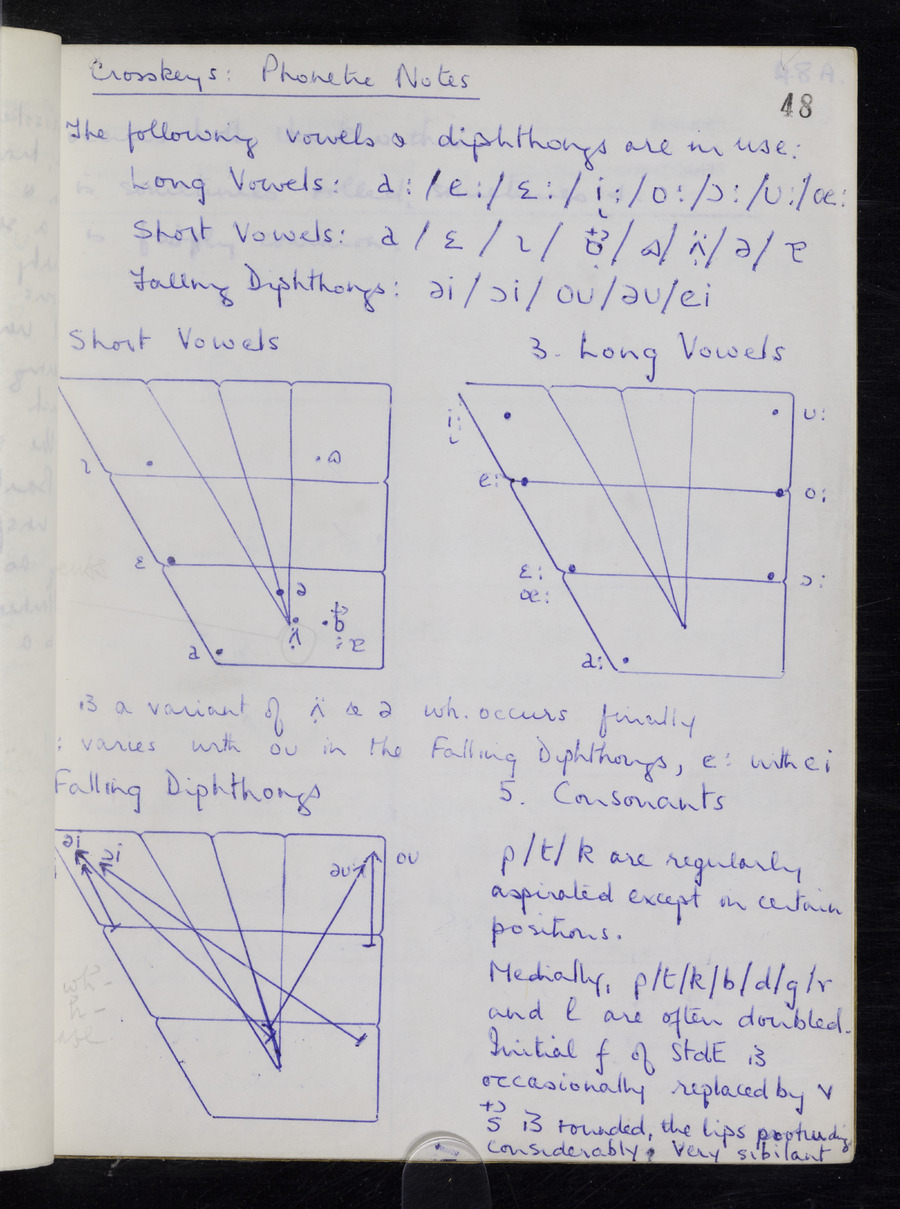 48
Crosskeys: Phonetic Notes
The following vowels & diphthongs are in use:
Long Vowels: a: / e: / ɛ: / i̞: / o: / ɔ: / ʊ: / œ:
Short Vowels: a / ɛ / ɩ / / ɷ / ʌ̈ / ə /
Falling Diphthongs: əi / ɔi / oʊ / əʊ / ei
Short Vowels
ɩ
ɷ
ɛ
ə
ʌ̈
a
3. Long Vowels
i:
ʊ:
e:
o:
ɛ:
ɔ:
œ:
a:
is a variant of ʌ̈ & ə wh. occurs finally
: varies with oʊ in the Falling Diphthongs, e: with ei
Falling Diphthongs
əi
ɔi
əʊ
oʊ
5. Consonants
p/t/k are regularly
aspirated except in certain
positions.
Medially, p/t/k/b/d/g/r
and l are often doubled.
Initial f of StdE is
occasionally replaced by v
is rounded, the lips protruding
considerably. Very sibilant